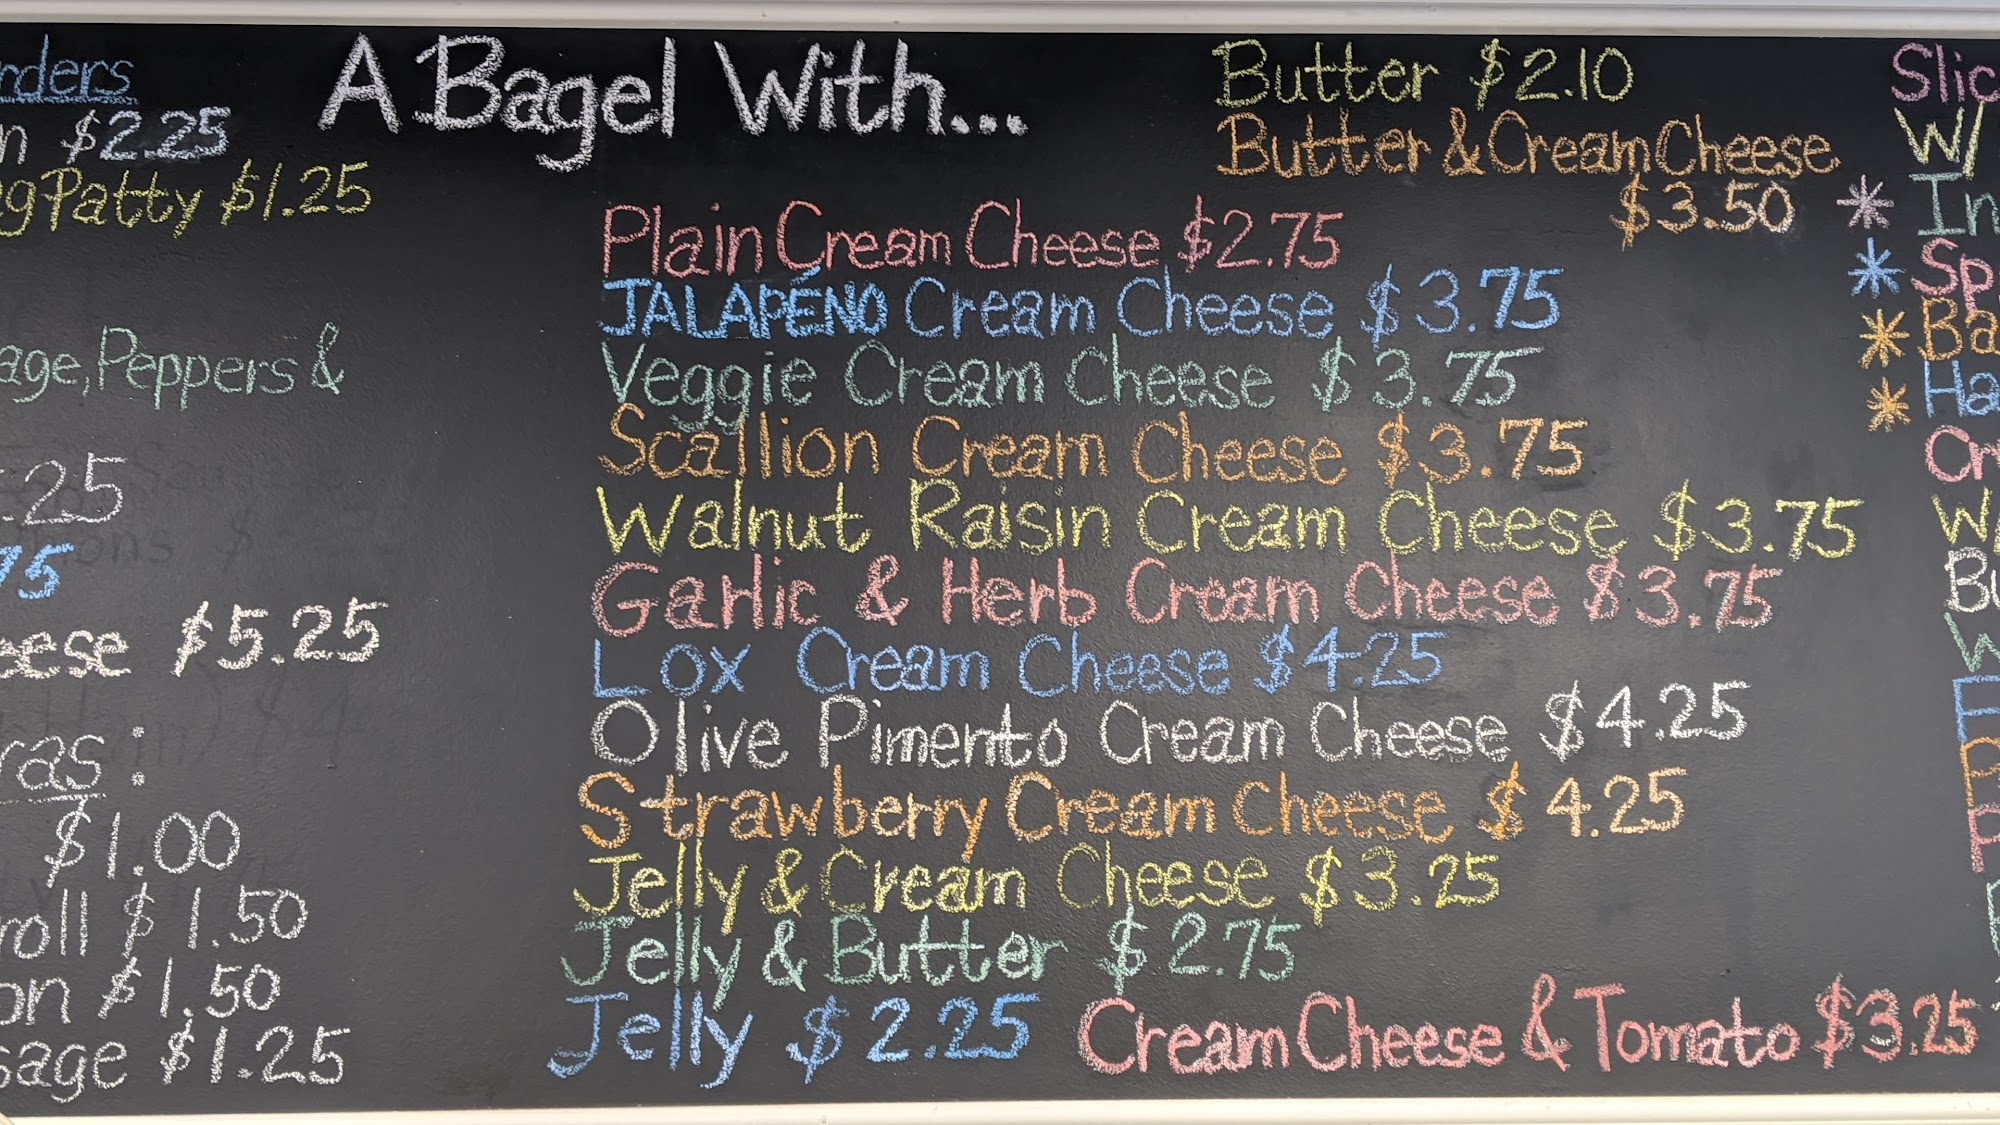 $2.25
Patty $1.25
Peppers &
.25
75
$5.25
:
$1.00
roll $1.50
$1.50
$1.25
A Bagel With...
Butter $2.10
Butter & Cream Cheese
$3.50
Plain Cream Cheese $2.75
JALAPÉNO Cream Cheese $3.75
Veggie Cream Cheese $3.75
Scallion Cream Cheese $3.75
Walnut Raisin Cream Cheese $3.75
Garlic & Herb Cream Cheese $3.75
Lox Cream Cheese $4.25
Olive Pimento Cream Cheese $4.25
Strawberry Cream Cheese $4.25
Jelly & Cream Cheese $3.25
Jelly & Butter $2.75
Jelly $2.25
Cream Cheese & Tomato $3.25
W/
*
*
*
*